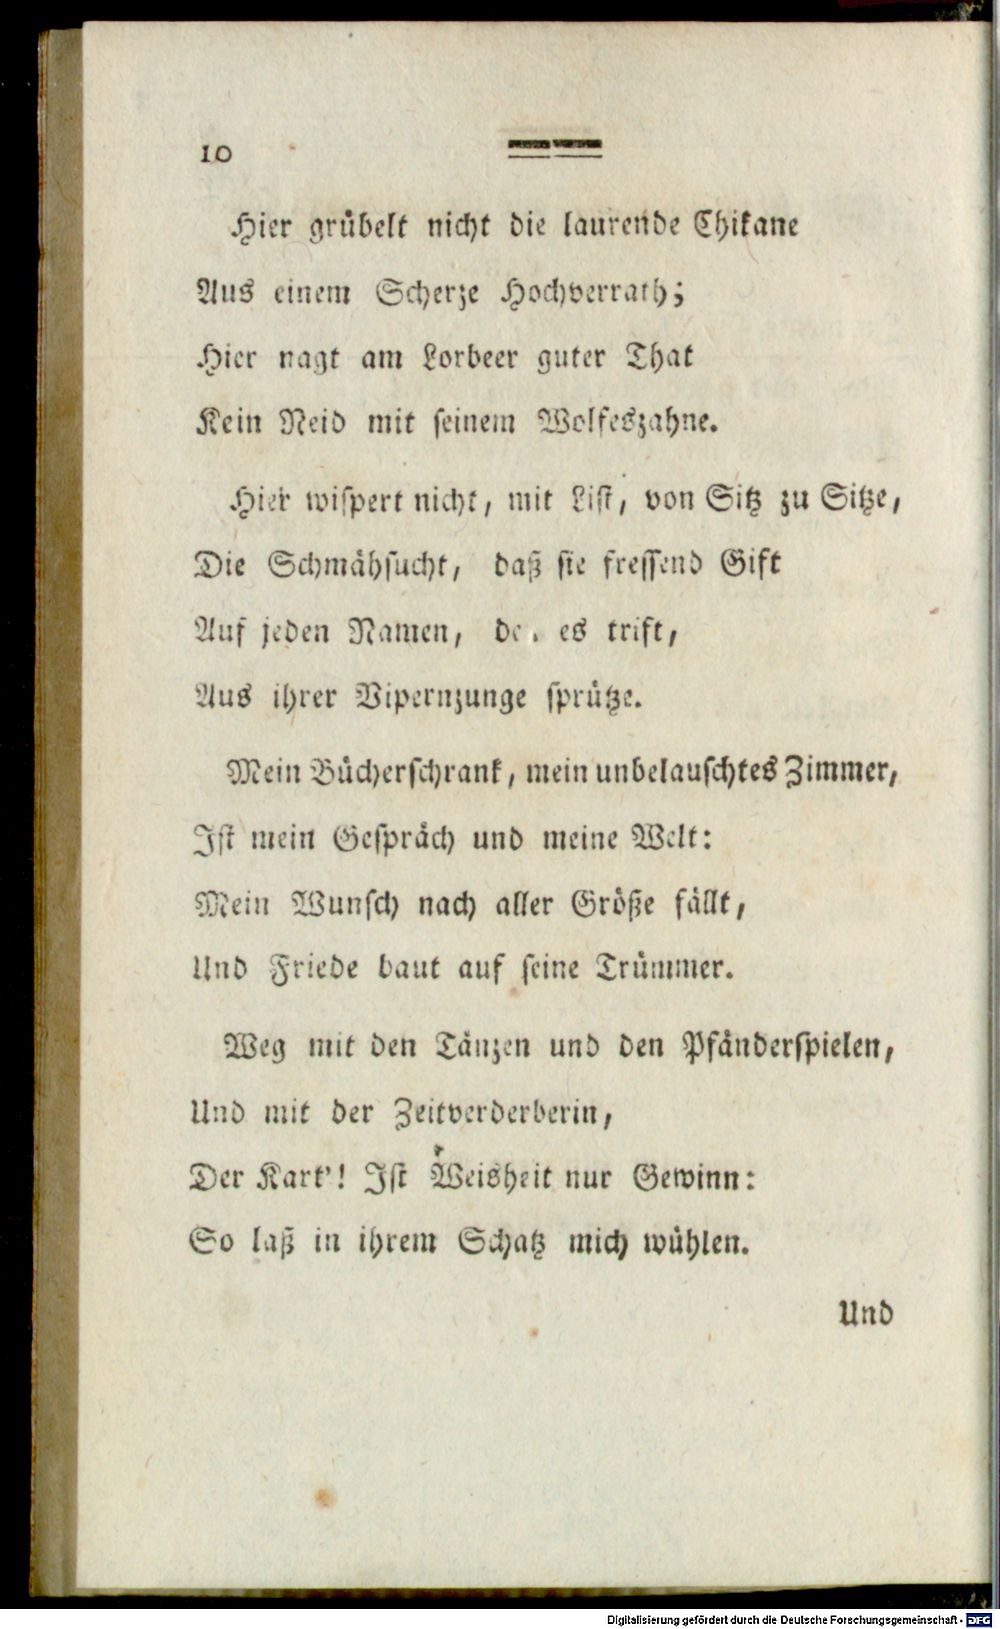 10
Hier grübelt nicht die laurende Chikane
Aus einem Scherze Hochverrath;
Hier nagt am Lorbeer guter That
Kein Neid mit seinem Wolfeszahne.
Hier wispert nicht, mit List, von Sitz zu Sitze,
Die Schmähsucht, daß sie fressend Gift
Auf jeden Namen, de. es trift,
Aus ihrer Vipernzunge sprütze.
Mein Bücherschrank, mein unbelauschtes Zimmer,
Ist mein Gespräch und meine Welt:
Mein Wunsch nach aller Größe fällt,
Und Friede baut auf seine Trümmer.
Weg mit den Tänzen und den Pfänderspielen,
Und mit der Zeitverderberin,
Der Kart'! Ist Weisheit nur Gewinn:
So laß in ihrem Schatz mich wühlen.
Und
Digitalisierung gefördert durch die Deutsche Forschungsgemeinschaft - DFG